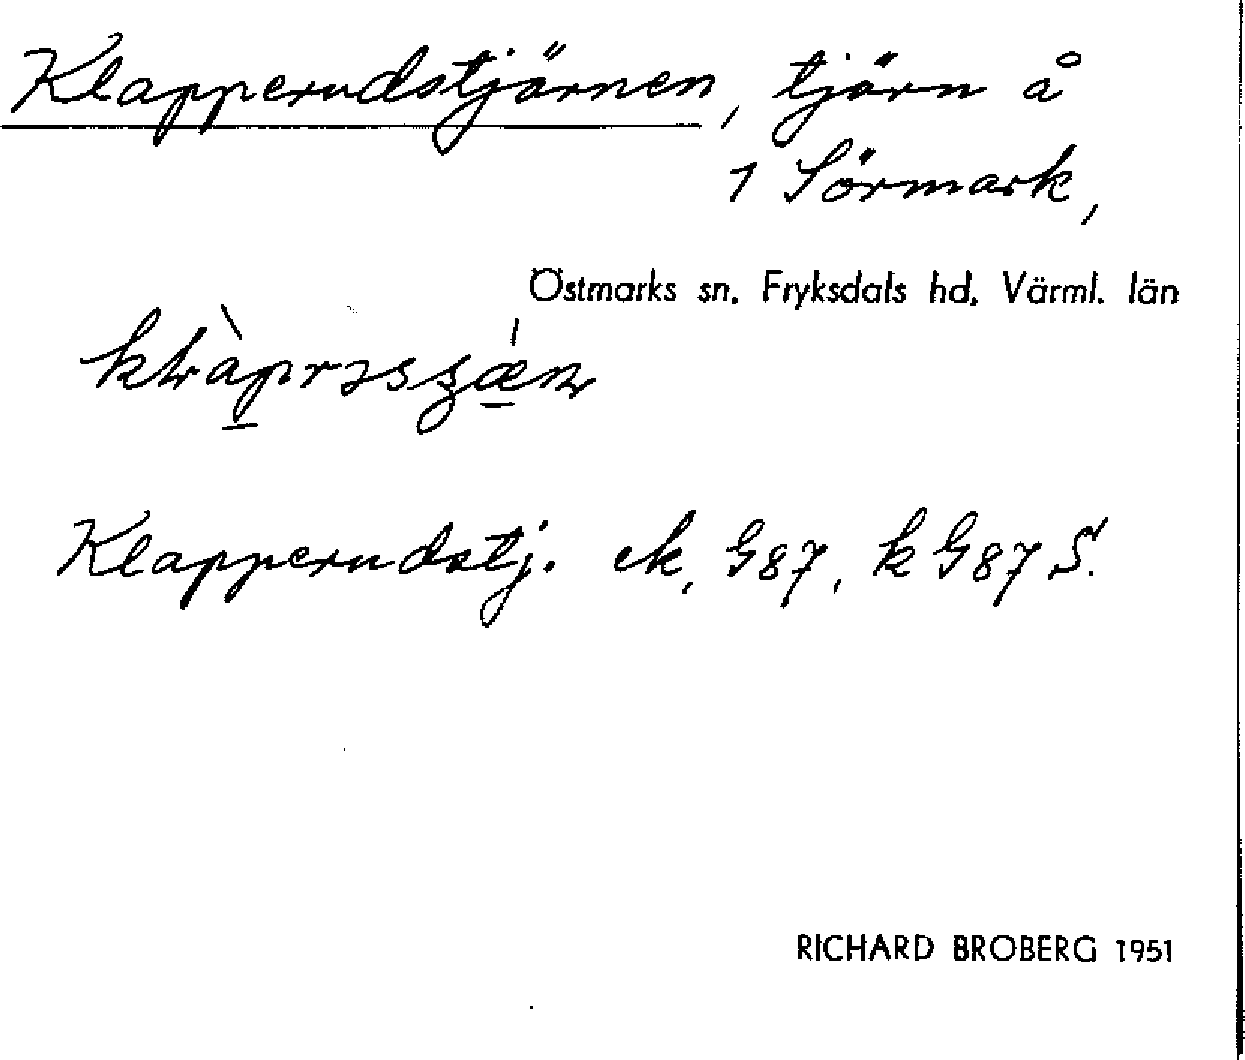 Klapperudstjärnen, tjärn å
1 Sörmark,
Östmarks sn. Fryksdals hd. Värml. län
Klapperudstj. ek, G87, k G87 S.
RICHARD BROBERG 1951